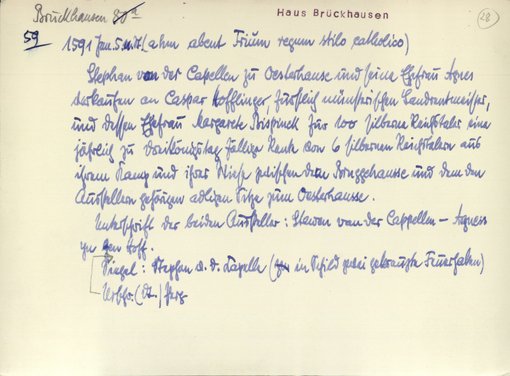 Brückhausen
Haus Brückhausen
28
59
1591 Jan. 5 (ahm abent Trium regum stilo catholico)
Stephan von der Capellen zu Oesterhause und seine Ehefrau Agnes
verkaufen an Caspar Höfflinger, fürstlich münsterischen Landrentmeister,
und dessen Ehefrau Margarete Bispinck für 100 silberne Reichstaler eine
jährlich zu Dreikönigstag fällige Rente von 6 silbernen Reichstalern aus
ihrem Kamp und ihrer Wiese zwischen dem Brüggehause und dem den
Ausstellern gehörigen adligen Sitze zum Oesterhause.
Unterschrift der beiden Aussteller: Steven van der Cappellen – Agness
yn den Hoff.
Siegel: Stephan v. d. Capelle (in Schild zwei gekreuzte Feuerhaken)
Urschr. (dt.) Perg.